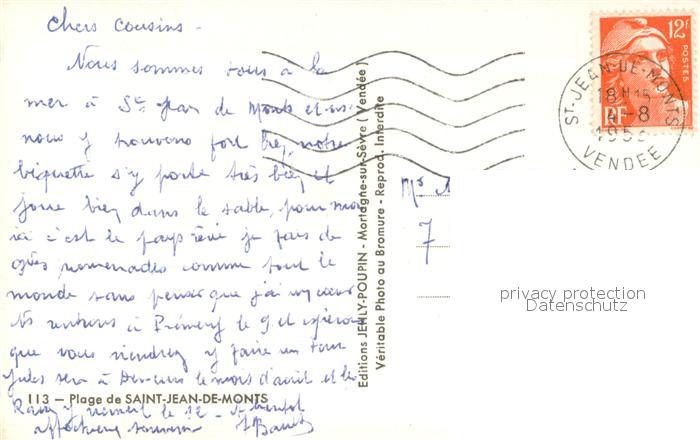 Chers Cousins -
Nous sommes tous à la
mer à St Jean de Monts et
nous y trouvons fort bien, notre
biquette s'y porte très bien et
joue bien dans le sable, pour moi
ici c'est le pays rêvé je fais de
promenades comme tout le
monde sans penser que j'ai un cœur
rentrons à Prémery le 9 et
que vous viendrez y faire un tour
Jules sera à le mois d'août et
le 12 - A bientôt
affectueux
12F
POSTES
RF
ST-JEAN-DE-MONTS
18H15
4-8
VENDÉE
7
Editions JEHLY-POUPIN - Mortagne-sur-Sèvre (Vendée)
Véritable Photo au Bromure - Reprod. Interdite
113 — Plage de SAINT-JEAN-DE-MONTS
privacy protection
Datenschutz